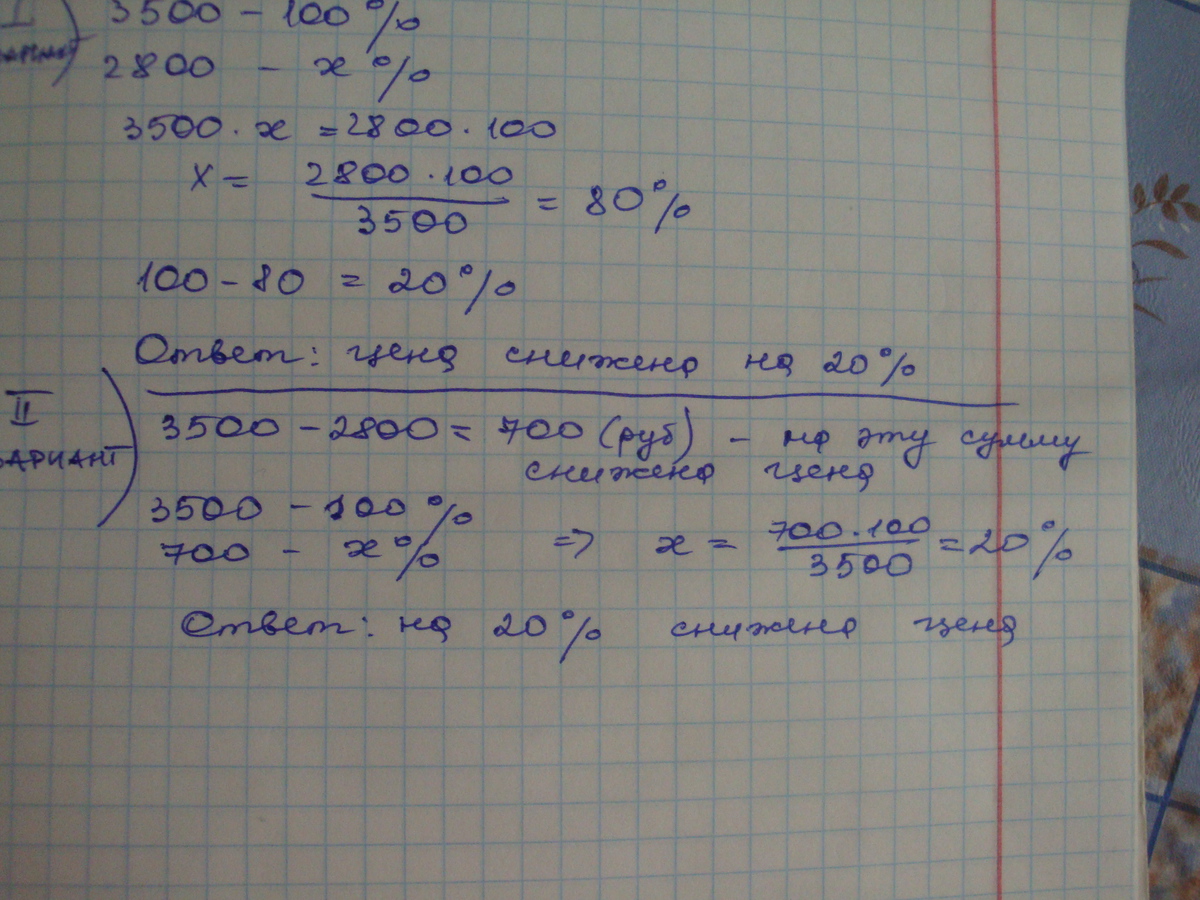 I
3500 - 100%
2800 - x%
3500 · x = 2800 · 100
x = 2800 · 100 / 3500 = 80%
100 - 80 = 20%
Ответ: цена снижена на 20%
II
ВАРИАНТ
3500 - 2800 = 700 (руб) - на эту сумму
снижена цена
3500 - 100%
700 - x% => x = 700 · 100 / 3500 = 20%
Ответ: на 20% снижена цена